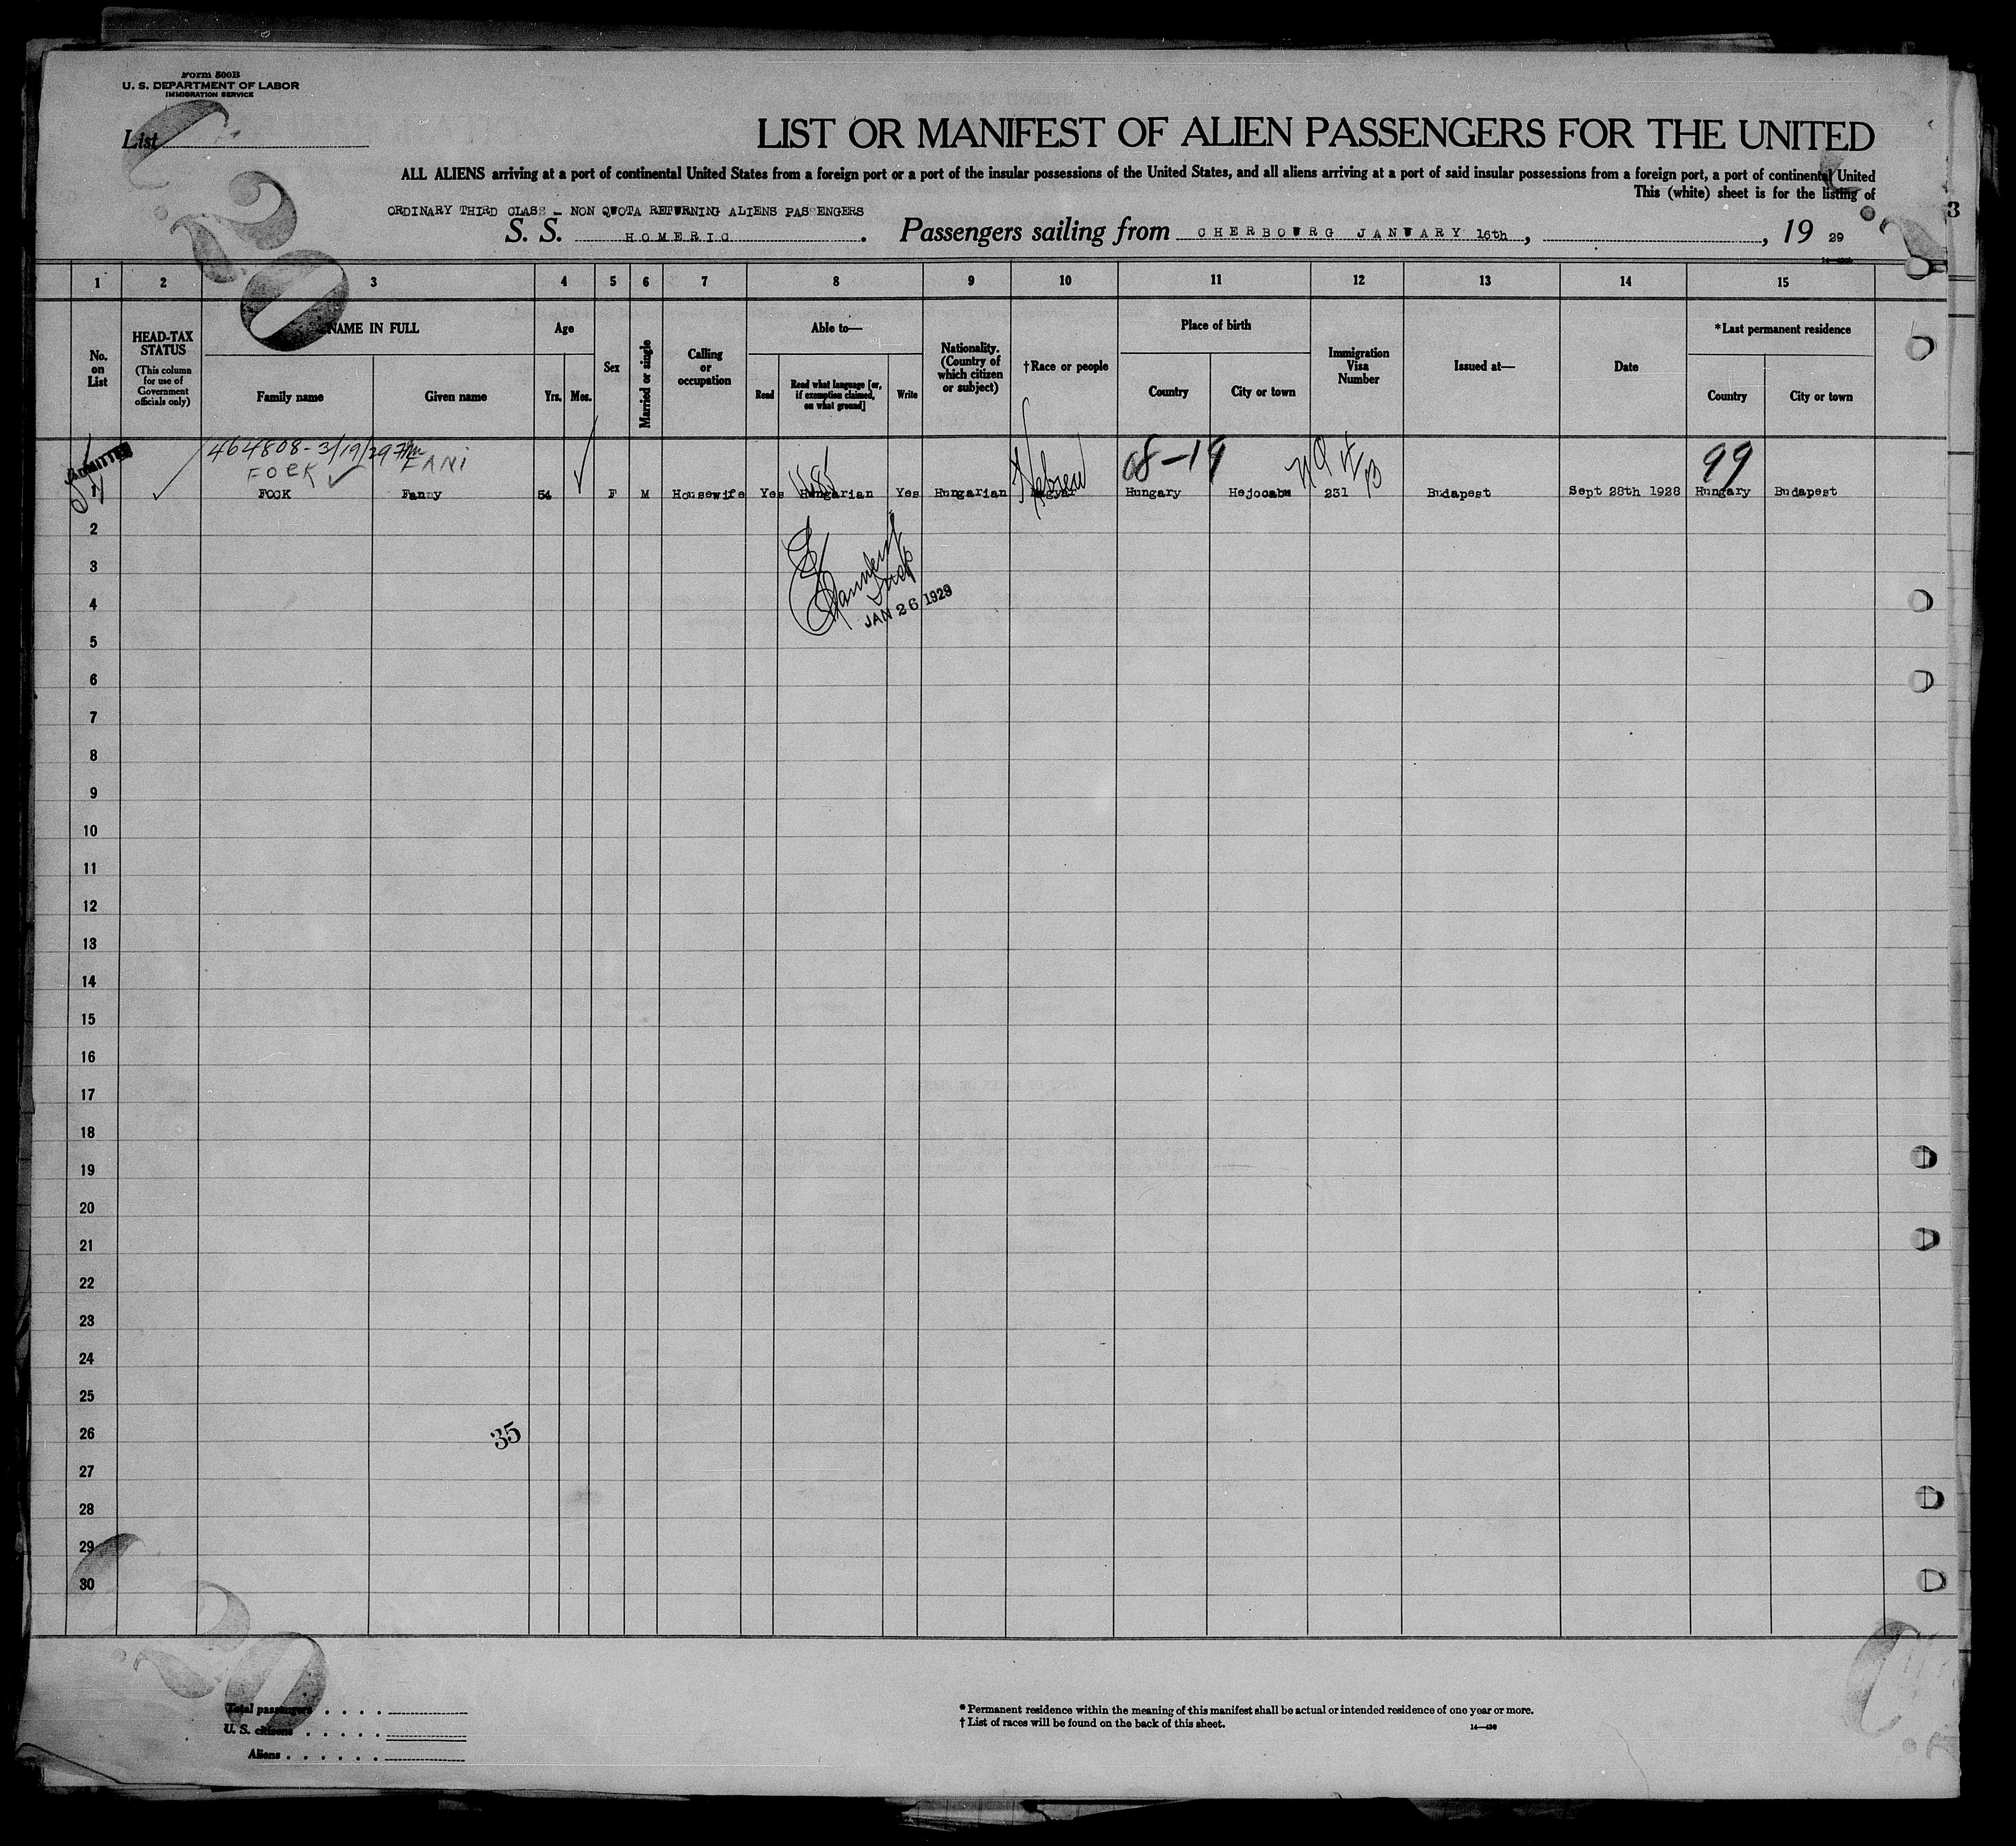 Form 500B
U. S. DEPARTMENT OF LABOR
IMMIGRATION SERVICE
List
LIST OR MANIFEST OF ALIEN PASSENGERS FOR THE UNITED
ALL ALIENS arriving at a port of continental United States from a foreign port or a port of the insular possessions of the United States, and all aliens arriving at a port of said insular possessions from a foreign port, a port of continental United
This (white) sheet is for the listing of
ORDINARY THIRD CLASS - NON QUOTA RETURNING ALIENS PASSENGERS
S. S. HOMERIC. Passengers sailing from CHERBOURG JANUARY 16th, , 19 29
3
1 2 3 4 5 6 7 8 9 10 11 12 13 14 15
No. on List
HEAD-TAX STATUS
(This column for use of Government officials only)
NAME IN FULL
Family name Given name
Age
Yrs. Mos.
Sex
Married or single
Calling or occupation
Able to—
Read
Read what language [or, if exemption claimed, on what ground]
Write
Nationality. (Country of which citizen or subject)
†Race or people
Place of birth
Country City or town
Immigration Visa Number
Issued at—
Date
*Last permanent residence
Country City or town
ADMITTED
464808-3/19/29
FOCK FANI
Hebrew
08-19
NQ
99
1 FOCK Fanny 54 F M Housewife Yes Hungarian Yes Hungarian Magyar Hungary Hejocabe 231 Budapest Sept 28th 1928 Hungary Budapest
2
3
4
JAN 26 1929
5
6
7
8
9
10
11
12
13
14
15
16
17
18
19
20
21
22
23
24
25
26
35
27
28
29
30
Total passengers
U. S. citizens
Aliens
*Permanent residence within the meaning of this manifest shall be actual or intended residence of one year or more.
†List of races will be found on the back of this sheet.